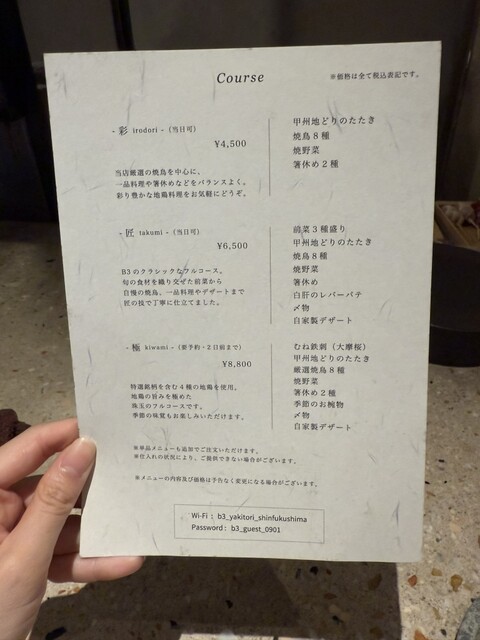 Course
※価格は全て税込表記です。
- 彩 irodori -（当日可）
¥4,500
当店厳選の焼鳥を中心に、
一品料理や箸休めなどをバランスよく。
彩り豊かな地鶏料理をお気軽にどうぞ。
甲州地どりのたたき
焼鳥８種
焼野菜
箸休め２種
- 匠 takumi -（当日可）
¥6,500
B3のクラシックなフルコース。
旬の食材を織り交ぜた前菜から
自慢の焼鳥、一品料理やデザートまで
匠の技で丁寧に仕立てました。
前菜３種盛り
甲州地どりのたたき
焼鳥８種
焼野菜
箸休め
白肝のレバーパテ
〆物
自家製デザート
- 極 kiwami -（要予約・２日前まで）
¥8,800
特選銘柄を含む４種の地鶏を使用。
地鶏の旨みを極めた
珠玉のフルコースです。
季節の味覚もお楽しみいただけます。
むね鉄刺（大摩桜）
甲州地どりのたたき
厳選焼鳥８種
焼野菜
箸休め２種
季節のお椀物
〆物
自家製デザート
※単品メニューも追加でご注文いただけます。
※仕入れの状況により、ご提供できない場合がございます。
※メニューの内容及び価格は予告なく変更になる場合がございます。
Wi-Fi : b3_yakitori_shinfukushima
Password : b3_guest_0901